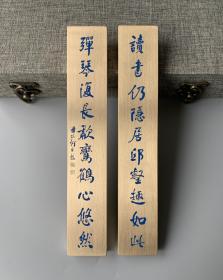 讀書仍隱居邱壑趣如此
彈琴復長歗鸞鶴心悠然